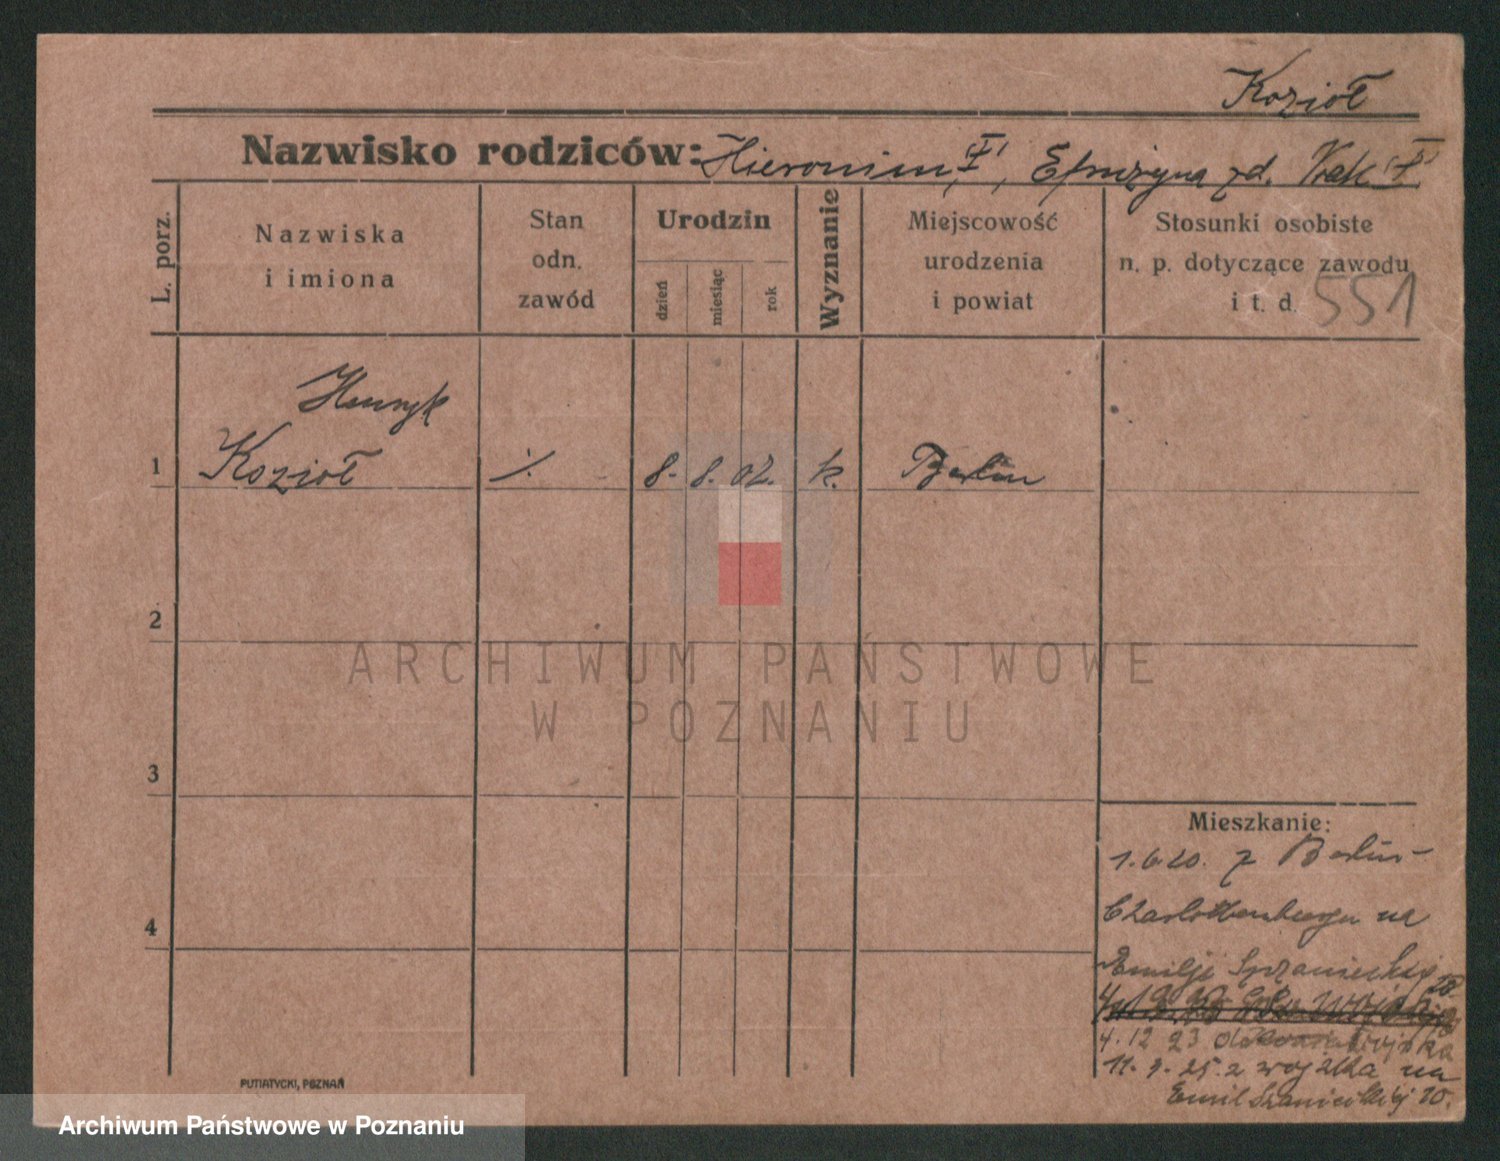 Kozioł
Nazwisko rodziców: Hieronim "†", Eufrozyna zd. Krak "†"
L. porz.
Nazwiska
i imiona
Stan
odn.
zawód
Urodzin
dzień
miesiąc
rok
Wyznanie
Miejscowość
urodzenia
i powiat
Stosunki osobiste
n. p. dotyczące zawodu
i t. d.
551
Henryk
1 Kozioł ·/. 8. 8. 02. k. Berlin
2
3
4
Mieszkanie:
1.6.20. z Berlin-
Charlottenburga na
Emilji Sczanieckiej
28.
4.12 23 do wojska
11.9.25. z wojska na
Emil Szanieckiej 20.
PUTIATYCKI, POZNAŃ
ARCHIWUM PAŃSTWOWE
W POZNANIU
Archiwum Państwowe w Poznaniu